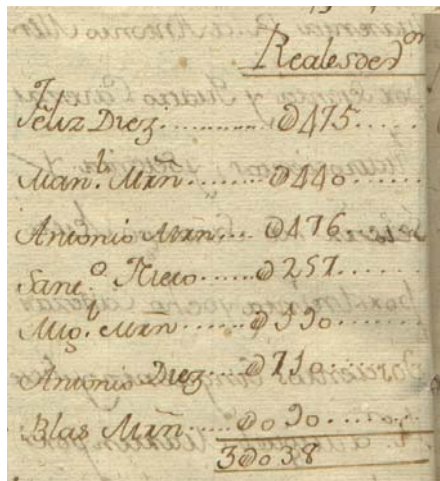 Reales de v.on
Feliz Diez........... D475.....
Man.l Mrñ....... D440......
Antonio Mrñ.... D476......
Sant.o Nieto...... D257......
Mig.l Mrñ...... D590......
Antonio Diez... D710......
Blas Mrñ..... D090......
3D038